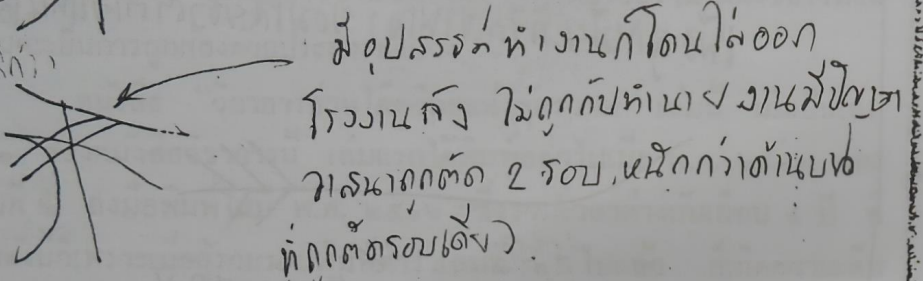 มีอุปสรรค์ทำงานก็โดนไล่ออก
โรงงานเจ๊ง ไม่ถูกกับทำนาย งานมีปัญหา
วาสนาถูกตัด 2 รอบ. หนักกว่าด้านบน
ที่ถูกตัดรอบเดียว.